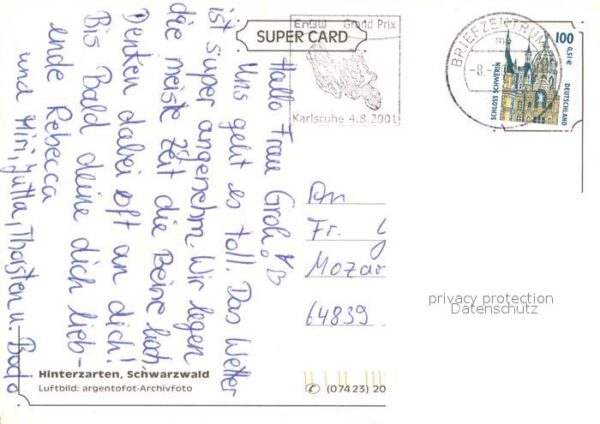 SUPER CARD
EnBW Grand Prix
Karlsruhe 4.8.2001
BRIEFZENTRUM
-8.-
100
0,51€
SCHLOSS SCHWERIN
DEUTSCHLAND
Hallo Frau Groh!
Uns geht es toll. Das Wetter
ist super angenehm. Wir legen
die meiste Zeit die Beine hoch.
Denken dabei oft an dich!
Bis Bald deine dich lieb-
ende Rebecca
und Miri, Jutta, Thorsten u. Bodo
An
Fr. G
Mozar
64839
privacy protection
Datenschutz
Hinterzarten, Schwarzwald
Luftbild: argentofot-Archivfoto
(07423) 20